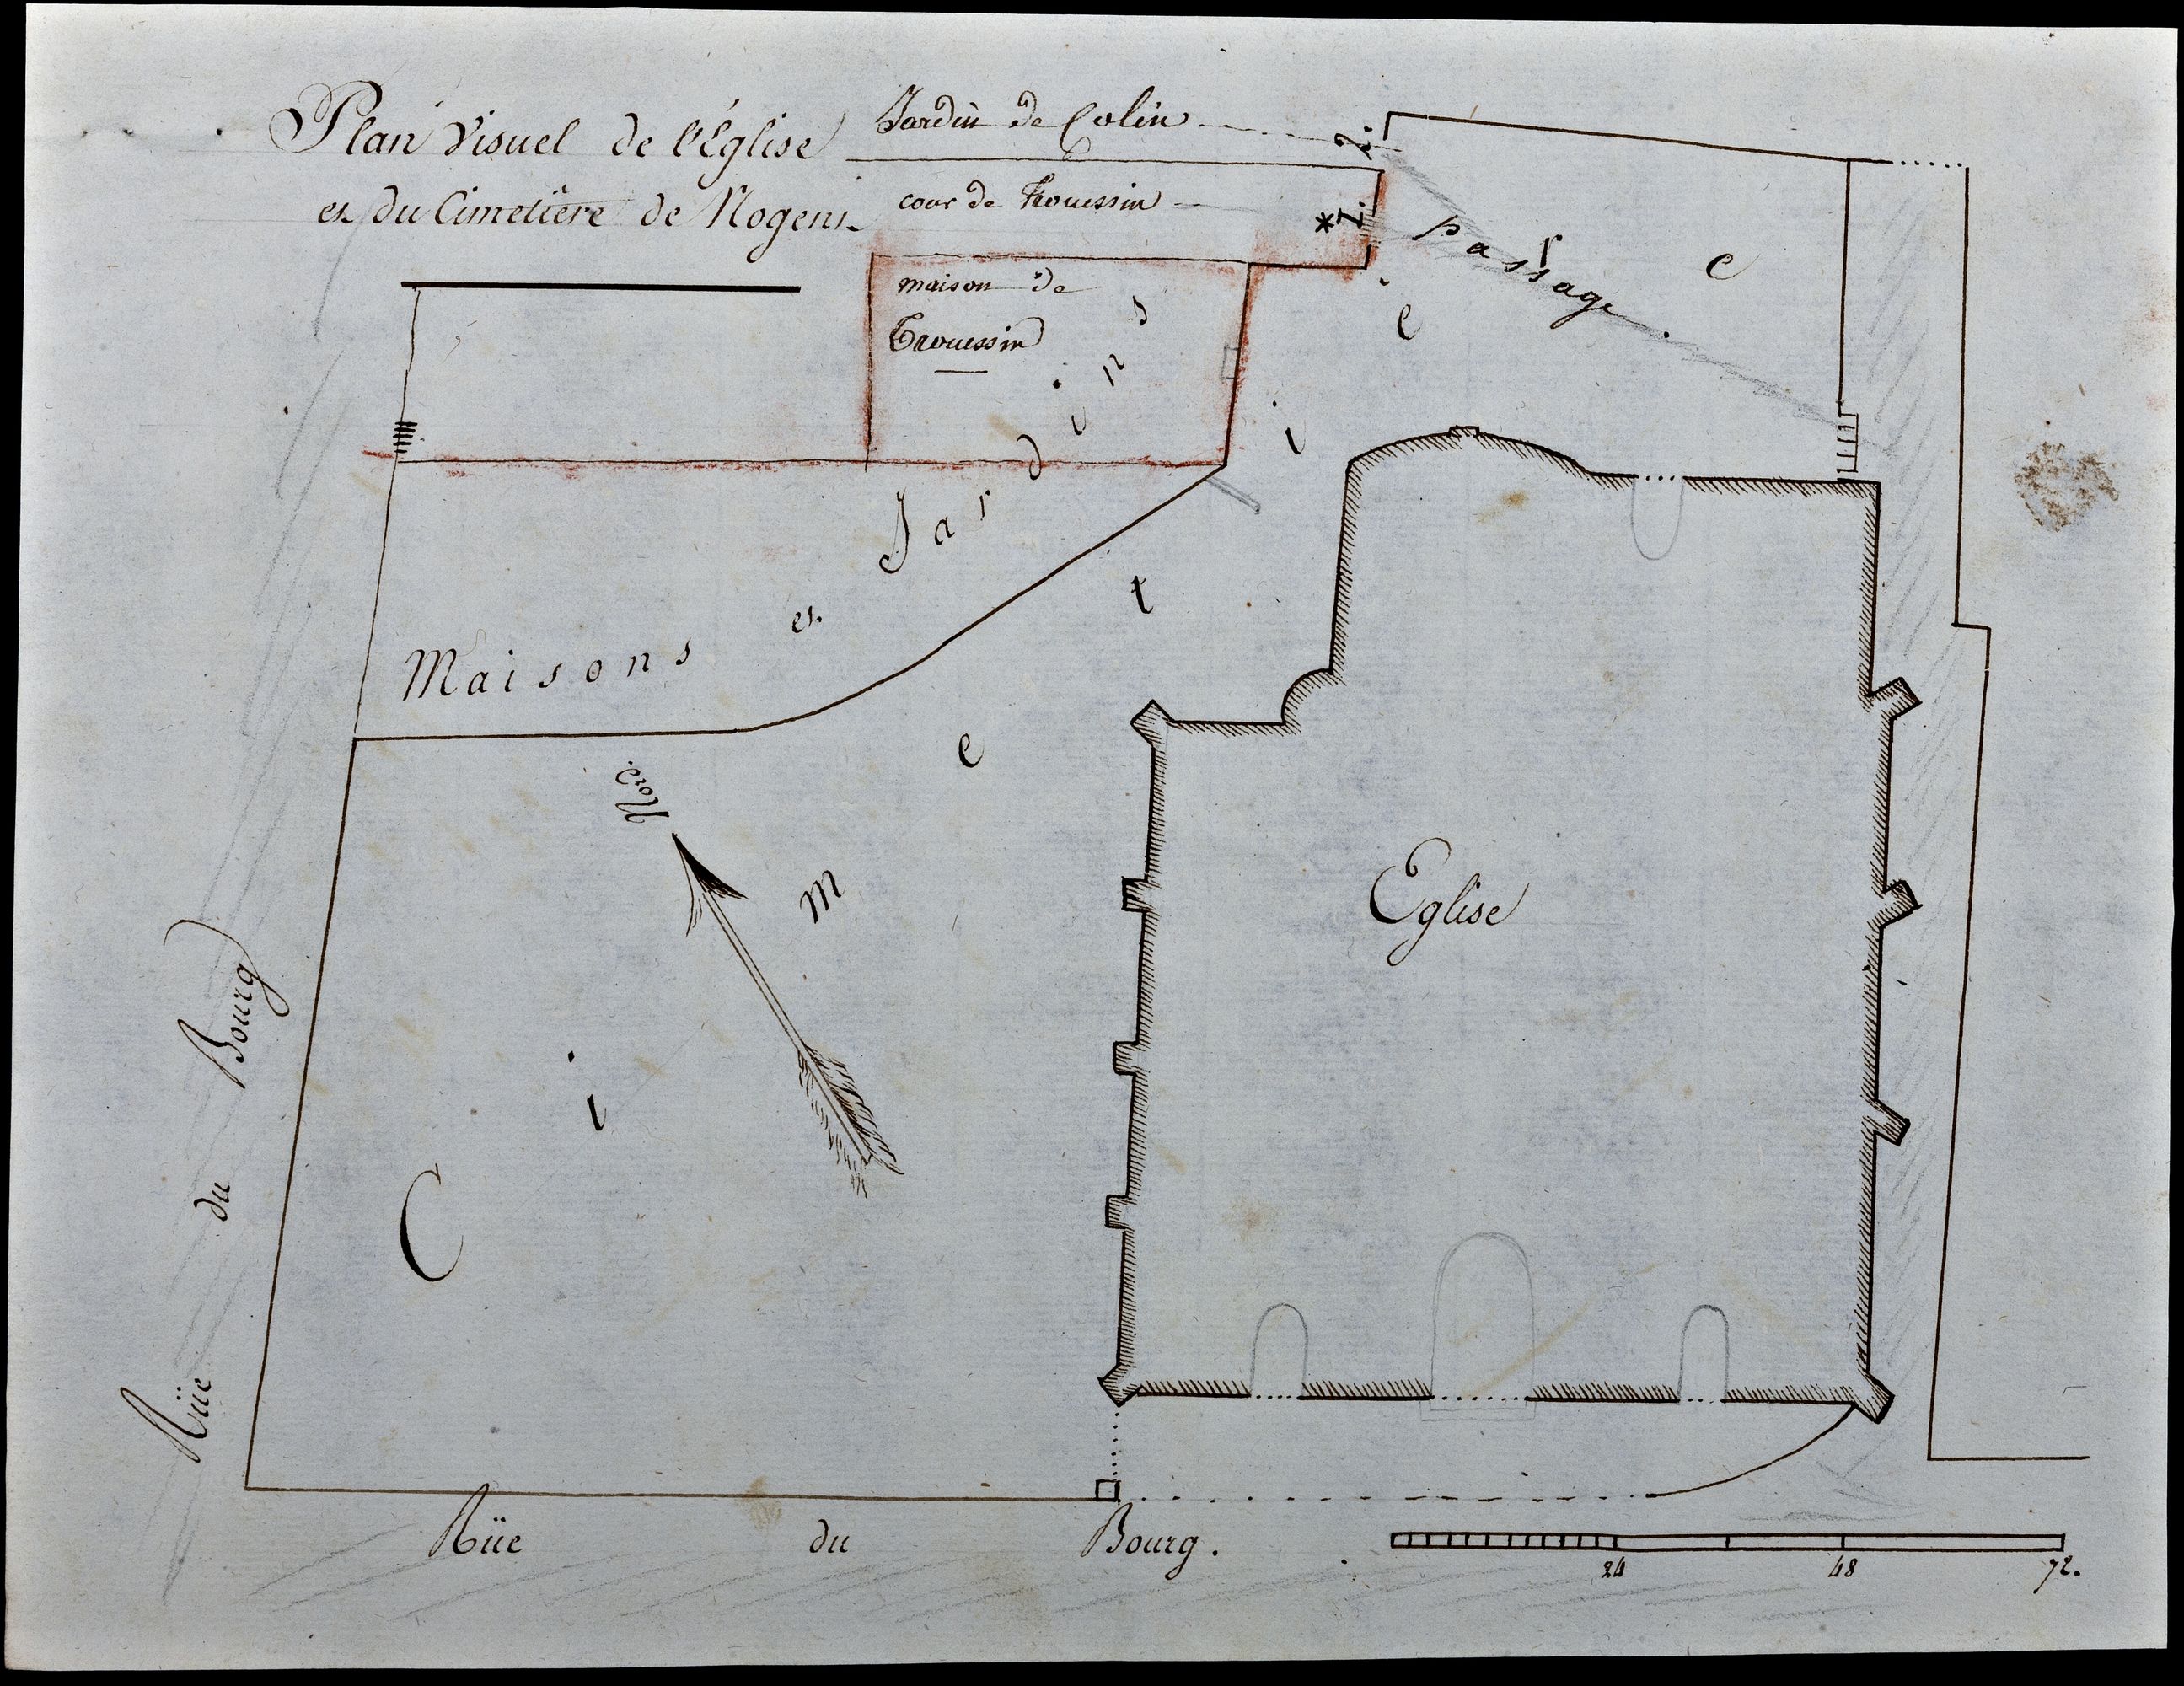 Plan Visuel de l'Église
et du Cimetiere de Nogent
Jardin de Colin
2.
cour de Trouessin
* 1.
passage.
maison de
Trouessin
Maisons et Jardins
Nord.
Cimetiere
Eglise
Rüe du Bourg
Rüe du Bourg.
24 48 72.